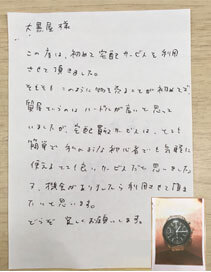 大黒屋様
この度は、初めて宅配サービスを利用
させて頂きました。
そもそも このように物を売ることが初めてで、
質屋というのは ハードルが高いと思って
いましたが、宅配買取サービスは、とても
簡単で 私のような初心者でも気軽に
使えるとても良いサービスだと思いました。
又、機会がありましたら利用させて頂き
たいと思います。
どうぞ 宜しくお願いします。